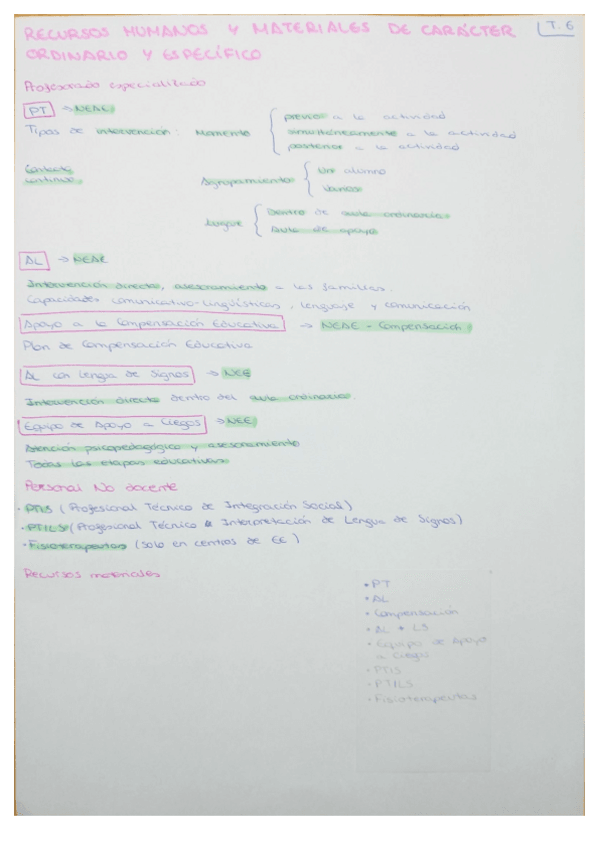 RECURSOS HUMANOS Y MATERIALES DE CARÁCTER
T. 6
ORDINARIO Y ESPECÍFICO
Profesorado especializado
PT → NEAE
Tipos de intervención: Momento
previo a la actividad
simultáneamente a la actividad
posterior a la actividad
Contacto
continuo
Agrupamiento
Un alumno
Varios
Lugar
Dentro de aula ordinaria
Aula de apoyo
AL → NEAE
Intervención directa, asesoramiento a las familias.
Capacidades comunicativo-lingüísticas, lenguaje y comunicación
Apoyo a la Compensación Educativa → NEAE - Compensación
Plan de Compensación Educativa
AL con Lengua de Signos → NEE
Intervención directa dentro del aula ordinaria
Equipo de Apoyo a Ciegos → NEE
Atención psicopedagógica y asesoramiento
Todas las etapas educativas
Personal No docente
· PTIS (Profesional Técnico de Integración Social)
· PTILS (Profesional Técnico Interpretación de Lengua de Signos)
· Fisioterapeutas (solo en centros de EE)
Recursos materiales
• PT
• AL
• Compensación
• AL + LS
• Equipo de Apoyo
a Ciegos
• PTIS
• PTILS
• Fisioterapeutas